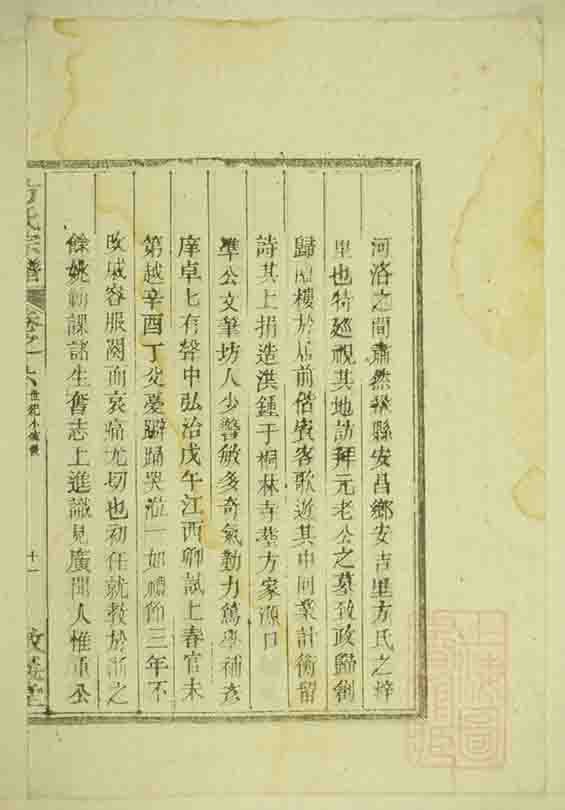 河洛之間肅然歙縣安昌鄉安吉里方氏之梓
里也特廵視其地訪拜元老公之墓致政歸創
歸樓於居前偕賓客歌遊其中同業計衡留
詩其上捐造洪鍾于桐林寺塟方家源口
準公文筆坊人少警敏多奇氣勤力篤學補彥
庠卓匕有聲中弘治戊午江西鄉試上春官未
第越辛酉丁父憂擗踊哭泣一如禮節三年不
改戚容服闋而哀痛尤切也初任就教於浙之
餘姚朝課諸生奮志上進識見廣聞人惟重公
方氏宗譜
卷之一
世紀小傳
十一
敦義堂